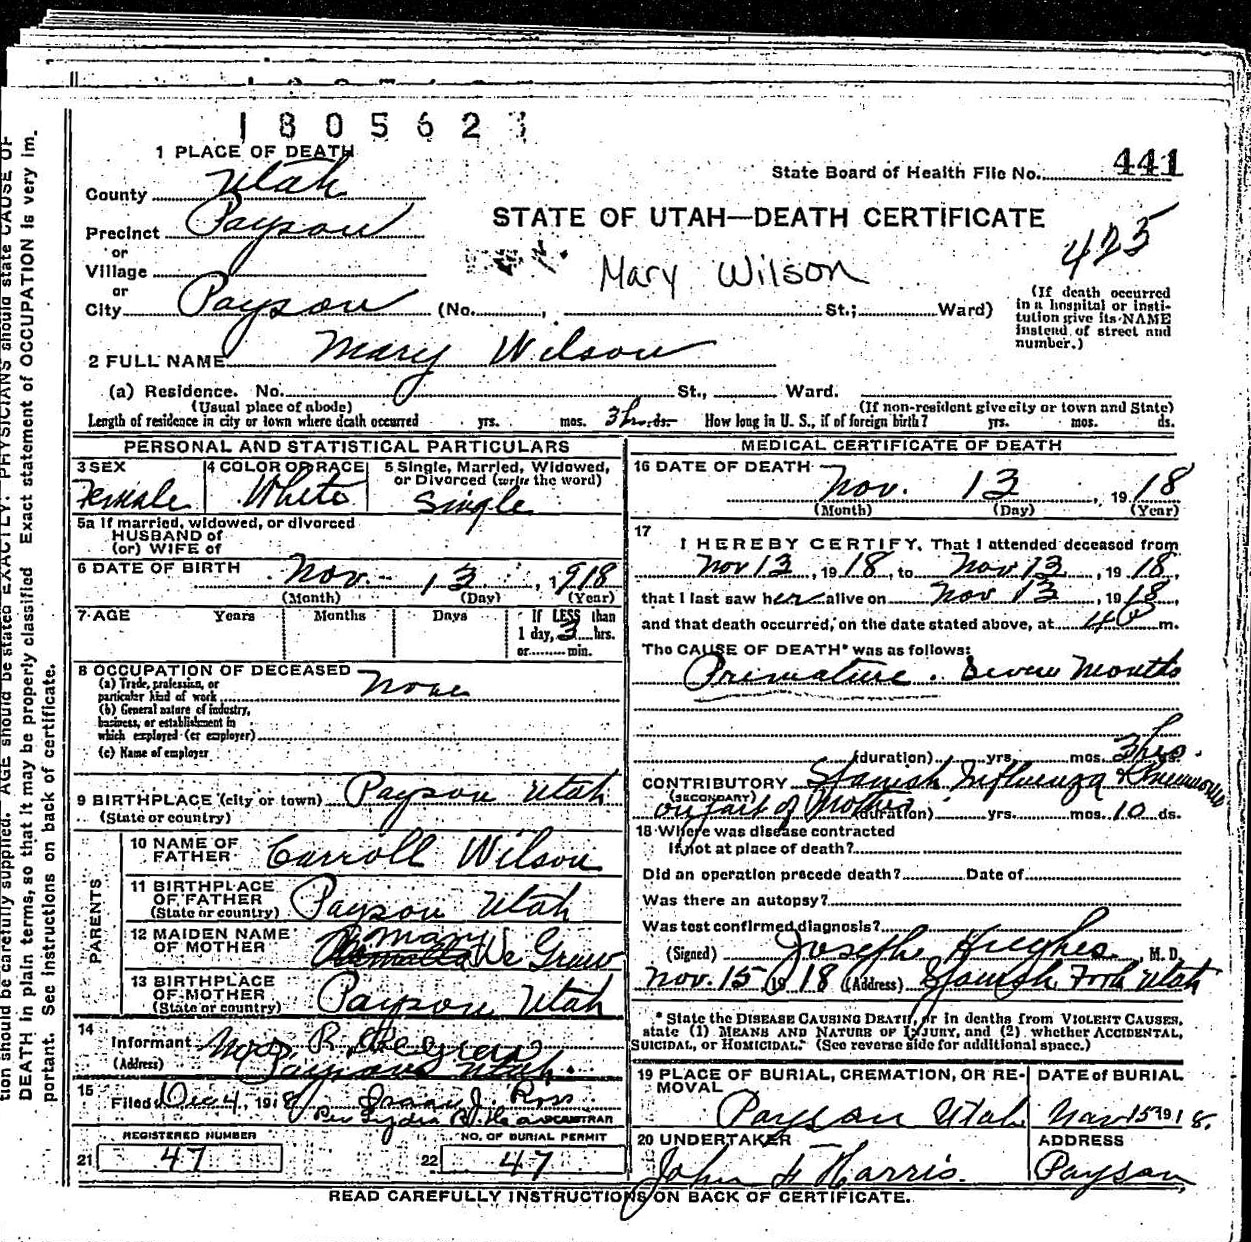 1805623
1 PLACE OF DEATH
State Board of Health File No. 441
County Utah
STATE OF UTAH—DEATH CERTIFICATE
Precinct Payson
425
or
Village
Mary Wilson
or
City Payson (No. , St.; Ward)
(If death occurred in a hospital or institution give its NAME instead of street and number.)
2 FULL NAME Mary Wilson
(a) Residence. No. St., Ward.
(Usual place of abode) (If non-resident give city or town and State)
Length of residence in city or town where death occurred yrs. mos. 3 hrs. ds. How long in U. S., if of foreign birth? yrs. mos. ds.
PERSONAL AND STATISTICAL PARTICULARS
3 SEX Female
4 COLOR OR RACE White
5 Single, Married, Widowed, or Divorced (write the word) Single
5a If married, widowed, or divorced
HUSBAND of
(or) WIFE of
6 DATE OF BIRTH Nov. 13, 1918
(Month) (Day) (Year)
7 AGE Years Months Days If LESS than 1 day, 3 hrs. or min.
8 OCCUPATION OF DECEASED None
(a) Trade, profession, or particular kind of work
(b) General nature of industry, business, or establishment in which employed (or employer)
(c) Name of employer
9 BIRTHPLACE (city or town) Payson Utah
(State or country)
PARENTS
10 NAME OF FATHER Carroll Wilson
11 BIRTHPLACE OF FATHER (State or country) Payson Utah
12 MAIDEN NAME OF MOTHER Mary De Graw
13 BIRTHPLACE OF MOTHER (State or country) Payson Utah
14
Informant Mrs. R.
(Address) Payson Utah.
15
Filed Dec 4, 1918 Isaac J. Ross
Per Lydia REGISTRAR
REGISTERED NUMBER
21 47
NO. OF BURIAL PERMIT
22 47
MEDICAL CERTIFICATE OF DEATH
16 DATE OF DEATH Nov. 13, 1918
(Month) (Day) (Year)
17
I HEREBY CERTIFY, That I attended deceased from
Nov 13, 1918, to Nov 13, 1918,
that I last saw her alive on Nov 13, 1918,
and that death occurred, on the date stated above, at 4 P m.
The CAUSE OF DEATH* was as follows:
Primature. Seven Months
(duration) yrs. mos. 3 hrs. ds.
CONTRIBUTORY Spanish Influenza &
(SECONDARY) on part of Mother (duration) yrs. mos. 10 ds.
18 Where was disease contracted
If not at place of death?
Did an operation precede death? Date of
Was there an autopsy?
Was test confirmed diagnosis?
(Signed) Joseph Hughes M. D.
Nov. 15, 1918 (Address) Spanish Fork Utah
* State the DISEASE CAUSING DEATH, or in deaths from VIOLENT CAUSES,
state (1) MEANS AND NATURE OF INJURY, and (2) whether ACCIDENTAL,
SUICIDAL, or HOMICIDAL. (See reverse side for additional space.)
19 PLACE OF BURIAL, CREMATION, OR REMOVAL Payson Utah
DATE of BURIAL Nov 15 1918.
20 UNDERTAKER John F Harris.
ADDRESS Payson
READ CAREFULLY INSTRUCTIONS ON BACK OF CERTIFICATE.
tion should be carefully supplied. AGE should be stated EXACTLY. PHYSICIANS should state CAUSE OF
DEATH in plain terms, so that it may be properly classified. Exact statement of OCCUPATION is very im-
portant. See Instructions on back of certificate.